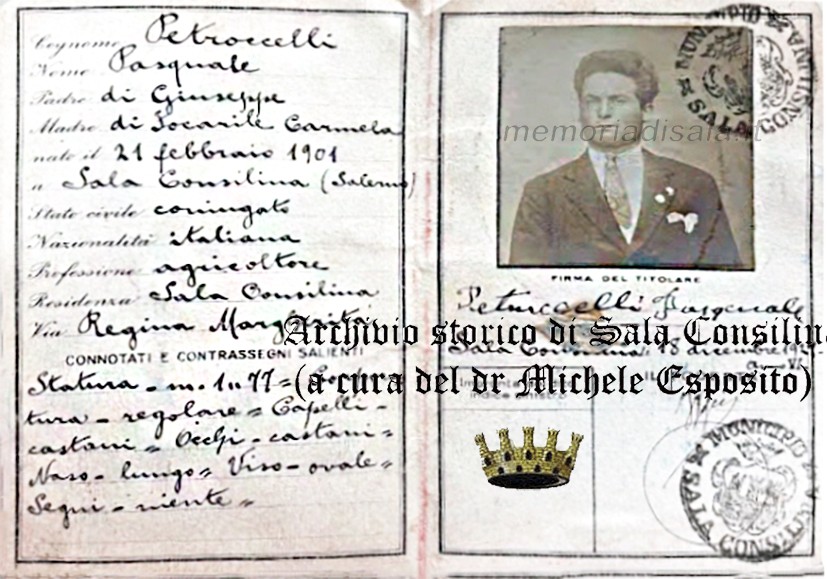 Cognome Petroccelli
Nome Pasquale
Padre di Giuseppe
Madre di Socarile Carmela
nato il 21 febbraio 1901
a Sala Consilina (Salerno)
Stato civile coniugato
Nazionalità italiana
Professione agricoltore
Residenza Sala Consilina
Via Regina Margherita
CONNOTATI E CONTRASSEGNI SALIENTI
Statura - m. 1.77 =
tura - regolare = Capelli -
castani = Occhi - castani =
Naso - lungo = Viso - ovale =
Segni - niente =
memoriadisala.it
MUNICIPIO
SALA CONSILINA
FIRMA DEL TITOLARE
Petruccelli Pasquale
Archivio storico di Sala Consilina
Sala Consilina, 18 dicembre
(a cura del dr Michele Esposito)
MUNICIPIO
SALA CONSILINA